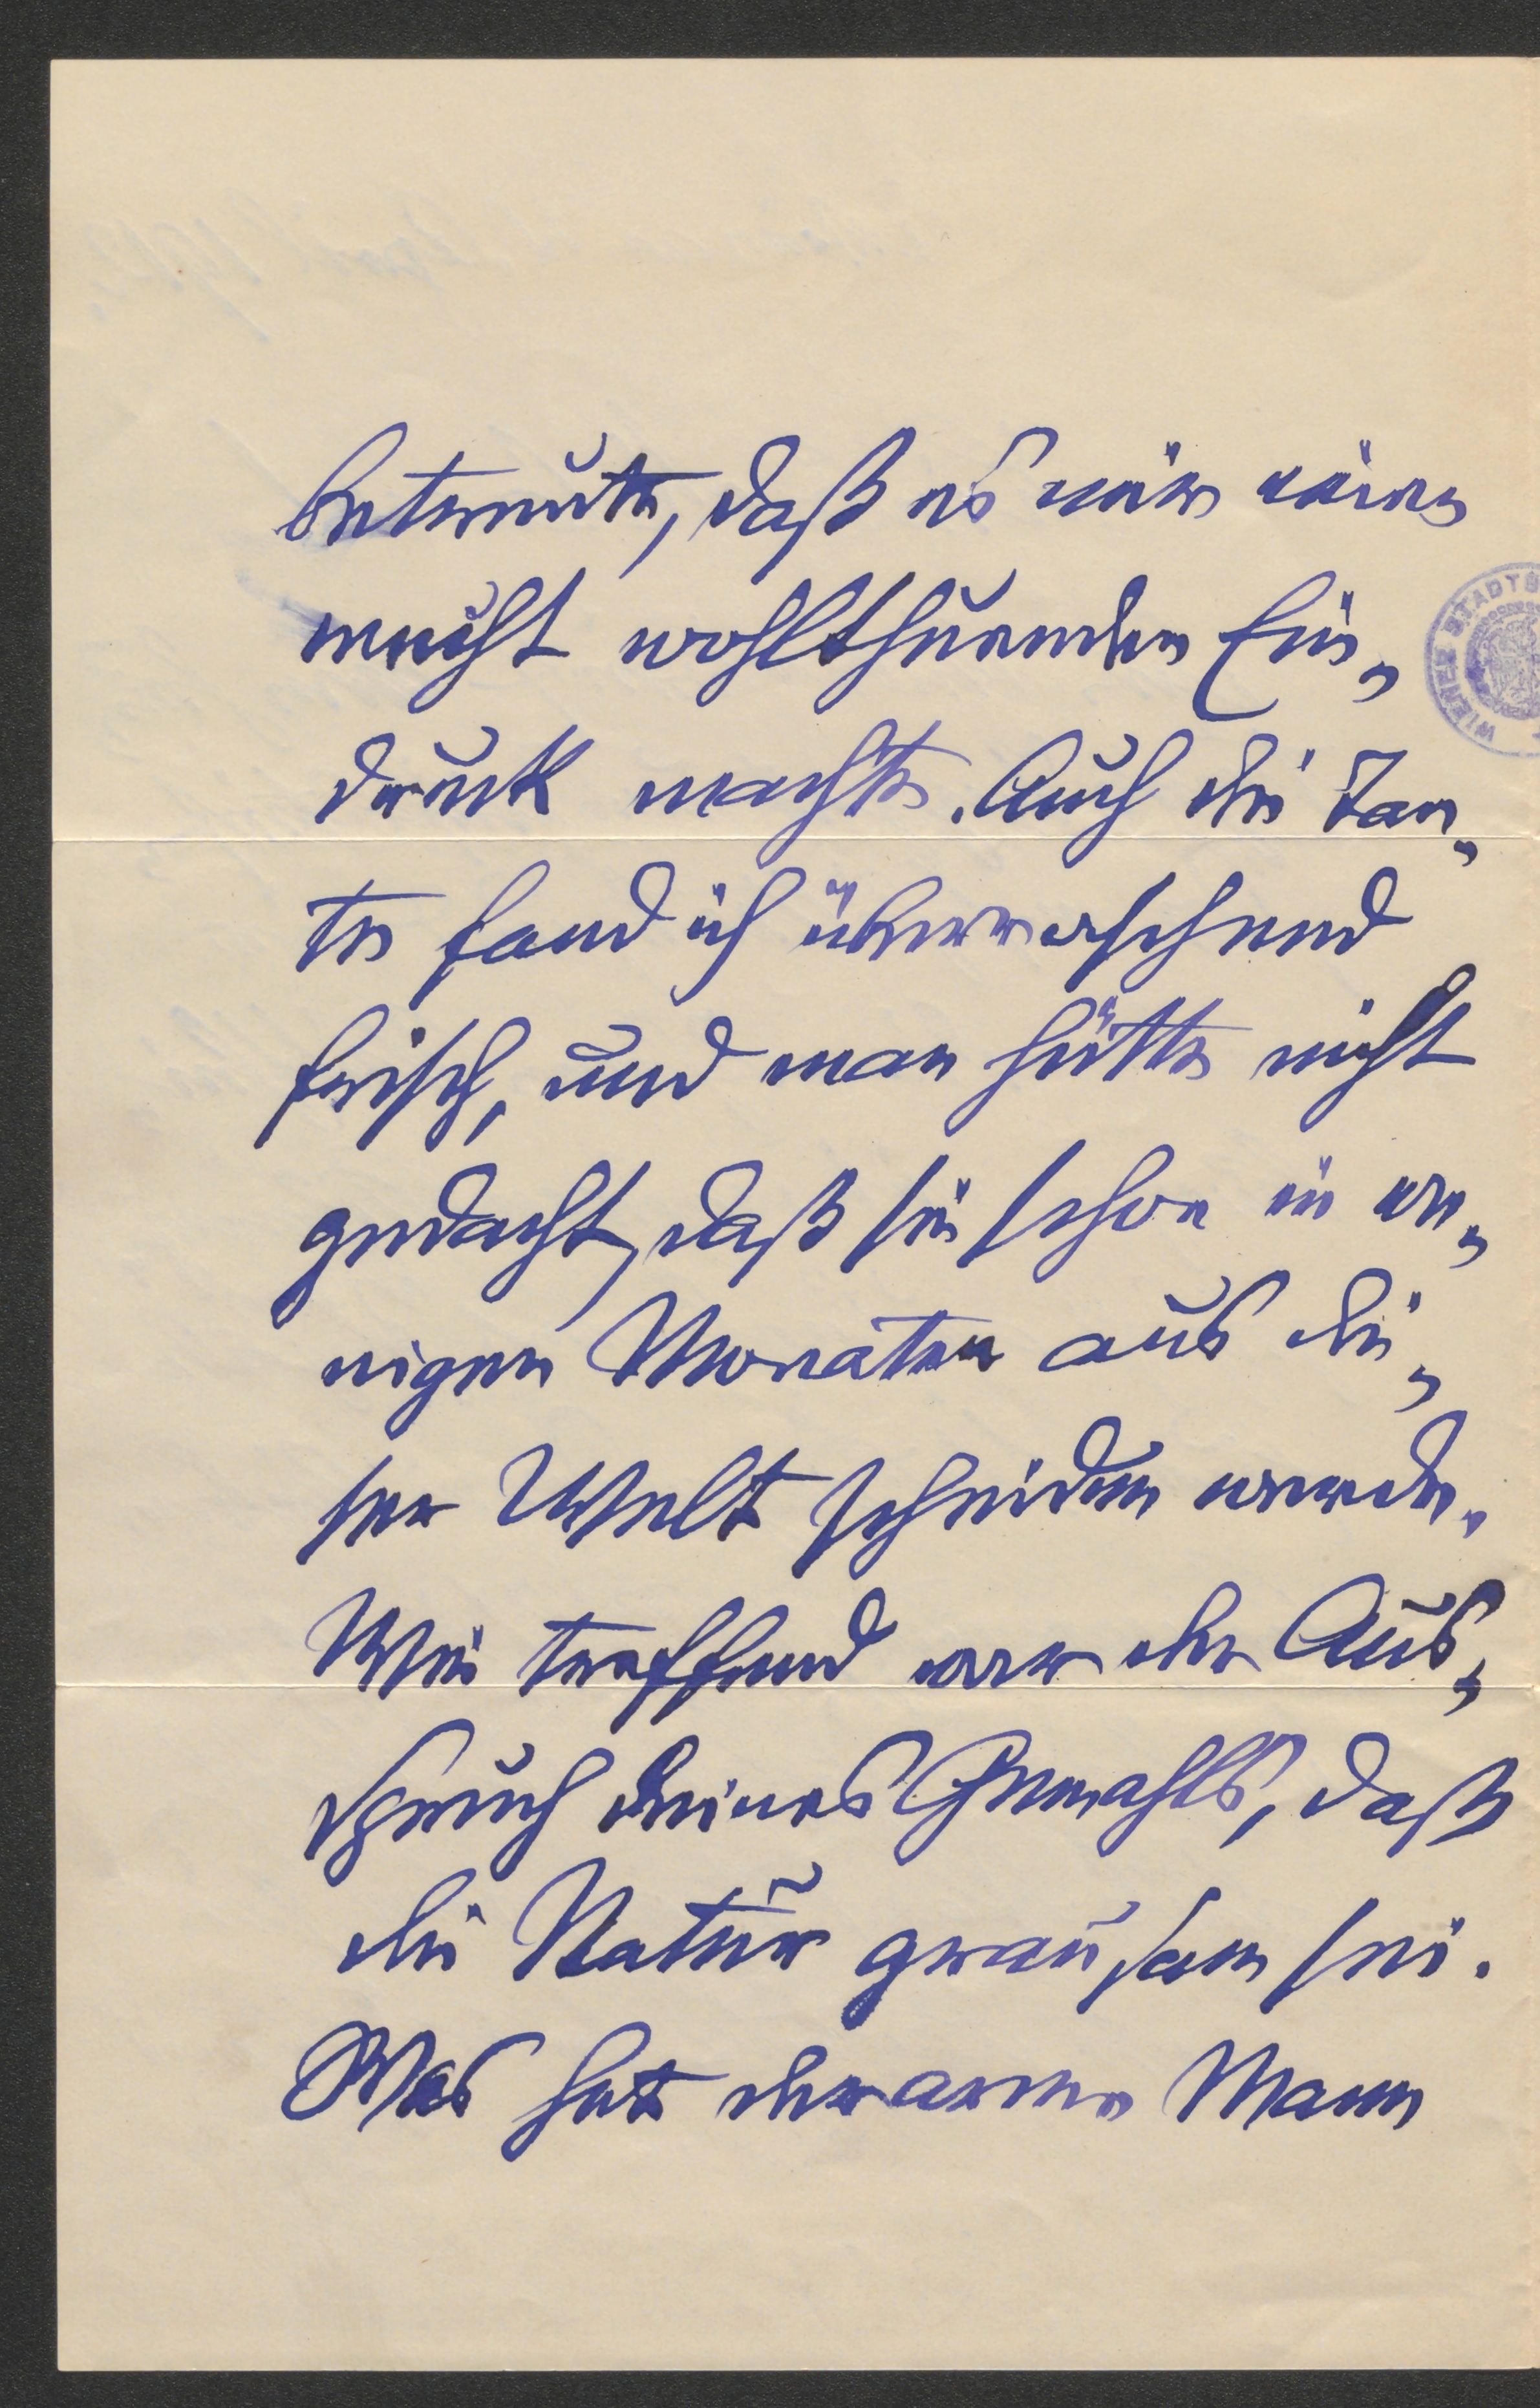 betreute, daß es mir einen
recht wohlthuenden Ein„
druck machte. Auch die Tan„
te fand ich überraschend
frisch, und man hätte nicht
gedacht, daß sie schon in we„
nigen Monaten aus die„
ser Welt scheiden werde.
Wie treffend war der Aus„
spruch deines Gemahls, daß
die Natur grausam sei.
Was hat der arme Mann
WIENER STADT